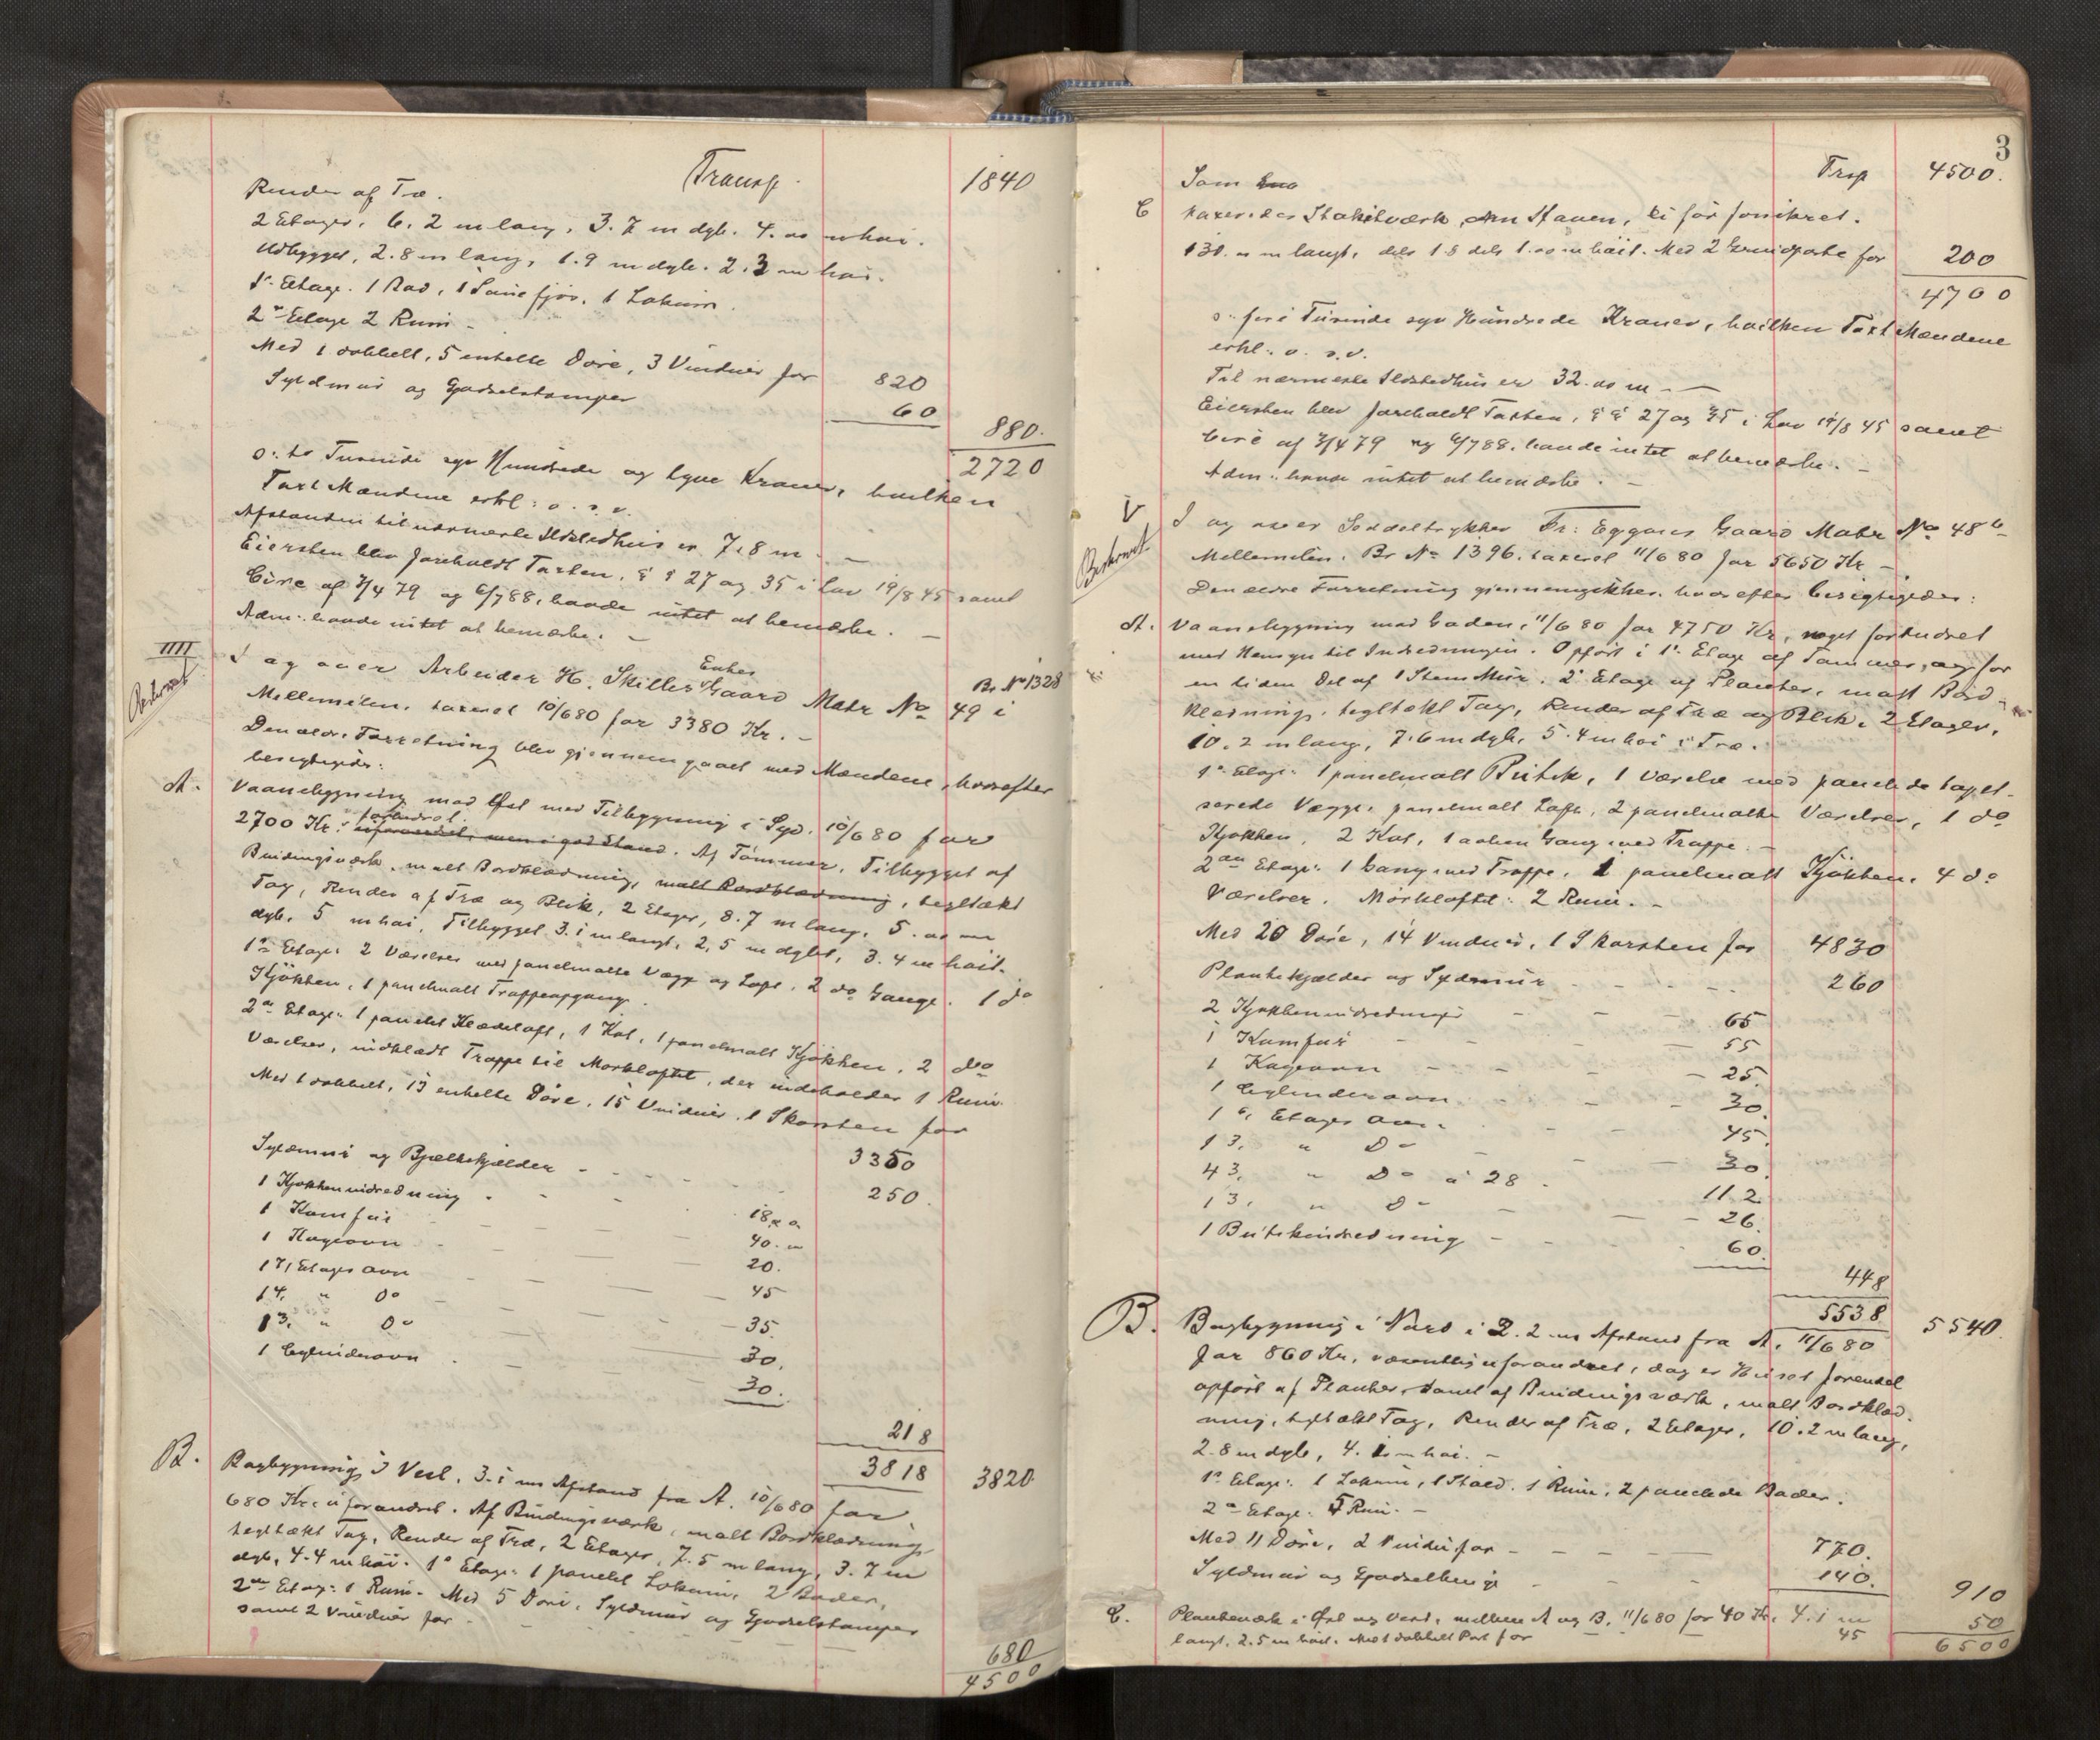 Transp. 1840
Render af Træ.
2 Etager. 6.2 m lang, 3.7 m dyb. 4.00 m høi.
Udbygget, 2.8 m lang, 1.9 m dyb. 2.3 m høi.
1ste Etage. 1 Bod, 1 Svinefjøs, 1 Lokum.
2den Etage 2 Rum –
Med 1 dobbelt, 5 enkelte Døre, 3 Vinduer for 820
Syldmur og Gadselstomper 60
880.
2720
ɔ: to Tusinde syv Hundrede og tyve Kroner, hvilken
Taxt Mændene erkl: o. s. v.
Afstanden til nærmeste Ildstedhus er 7.8 m. –
Eiersken blev foreholdt Taxten, §§ 27 og 35 i Lov 19/8 45 samt
Circ af 3/4 79 og 6/7 88, havde intet at bemærke. –
Adm: havde intet at bemærke. –
IIII
I og over Arbeider H. Skilles Enkes Gaard Matr No 49 i
Br. No 1328
Mellemilen. taxeret 10/6 80 for 3380 Kr. –
Den ældre Forretning blev gjennemgaaet med Mændene, hvorefter
besigtigedes:
A. Vaaningbygning mod Øst med Tilbygning i Syd. 10/6 80 for
2700 Kr: forbedret. uforandret, men i god Stand. Af Tømmer, Tilbygget af
Bindingsværk, malt Bordklædning, malt Bordklædning, tegltækt
Tag, Render af Træ og Blik, 2 Etager, 8.7 m lang, 5.00 m
dyb, 5 m høi, Tilbygget 3.1 m langt, 2,5 m dybt, 3.4 m høit.
1ste Etage: 2 Værelser med panelmalte Vægge og Loft, 2 do Gange. 1 do
Kjøkken, 1 panelmalt Trappeopgang.
2den Etage: 1 panelet Klædeloft, 1 Kot, 1 panelmalt Kjøkken, 2 do
Værelser, indklædt Trappe til Mørkloftet, der indeholder 1 Rum.
Med 1 dobbelt, 13 enkelte Døre, 15 Vinduer, 1 Skorsten for
3350
Syldmur og Bjælkekjælder 250.
1 Kjøkkenindredning 18
1 Komfur 40.
1 Kageovn 20.
1 7, Etages Ovn 45
1 4. " Do 35.
1 3. " Do 30.
1 Cylinderovn 30.
218
3818 3820
B. Bagbygning i Vest. 3.1 m Afstand fra A. 10/6 80 for
680 Kr: uforandret. Af Bindingsværk, malt Bordklædning,
tegltækt Tag, Render af Træ, 2 Etager, 7.5 m lang, 3.7 m
dyb, 4.4 m høi. 1ste Etage: 1 panelet Lokum, 2 Boder,
2den Etage: 1 Rum. Med 5 Døre, Syldmur og Gadselstomper
samt 2 Vinduer for
680
4500
3
Trsp 4500.
Som
C taxeredes Stakitværk om Haven, ei før forsikret.
131.00 m langt, dels 1.8 dels 1.00 m høit. Med 2 Grindporte for 200
4700
ɔ: fire Tusinde syv Hundrede Kroner, hvilken Taxt Mændene
erkl: o. s. v.
Til nærmeste Ildstedhus er 32.00 m –
Eiersken blev foreholdt Taxten, §§ 27 og 35 i Lov 19/8 45 samt
Circ af 3/4 79 og 6/7 88. havde intet at bemærke. –
Adm: havde intet at bemærke. –
V
I og over Seddeltrykker Fr: Eggans Gaard Matr No 48 b
Mellemilen. Br No 1396. taxeret 11/6 80 for 5650 Kr –
Den ældre Forretning gjennemgikkes. hvorefter besigtigedes:
A. Vaaningbygning mod Gaden, 11/6 80 for 4750 Kr, noget forbedret
med Hensyn til Indredningen. Opført i 1ste Etage af Tømmer, og for
en liden Del af 1 Stens Mur. 2den Etage af Planker, malt Bord-
klædning, tegltækt Tag, Render af Træ og Blik. 2 Etager,
10.2 m lang, 7.6 m dyb, 5.4 m høi i Træ.
1ste Etage: 1 panelmalt Butik, 1 Værelse med panelede tapet-
serede Vægge, panelmalt Loft, 2 panelmalte Værelser, 1 do
Kjøkken, 2 Kot, 1 aaben Gang med Trappe. –
2den Etage: 1 Gang med Trappe, 1 panelmalt Kjøkken. 4 do
Værelser. Mørkloftet: 2 Rum. –
Med 20 Døre, 14 Vinduer, 1 Skorsten for 4830
Plankekjælder og Syldmur 260
2 Kjøkkenindredninger 65
1 Komfur 55
1 Kageovn 25.
1 Cylinderovn 30.
1 6, Etages Ovn 45.
1 3, " Do 30.
4 3, " Do a 28 112.
1 3, " Do 26.
1 Butikindredning 60.
448
5538 5540.
B. Bagbygning i Nord i 2.2 m Afstand fra A. 11/6 80
for 860 Kr, væsentlig uforandret, dog er Huset forendel
opført af Planker, samt af Bindingsværk, malt Bordklæd-
ning, tegltækt Tag, Render af Træ, 2 Etager, 10.2 m lang,
2.8 m dyb, 4.1 m høi. –
1ste Etage: 1 Lokum, 1 Stald. 1 Rum, 2 panelede Boder.
2den Etage: Rum. –
Med 11 Døre, 2 Vinduer for 770.
Syldmur og Gadselbinge 140.
910
C. Plankeværk i Øst og Vest, mellem A og B. 11/6 80 for 40 Kr. 4.1 m
langt, 2.5 m høit. Med 1 dobbelt Port for 45
50
6500